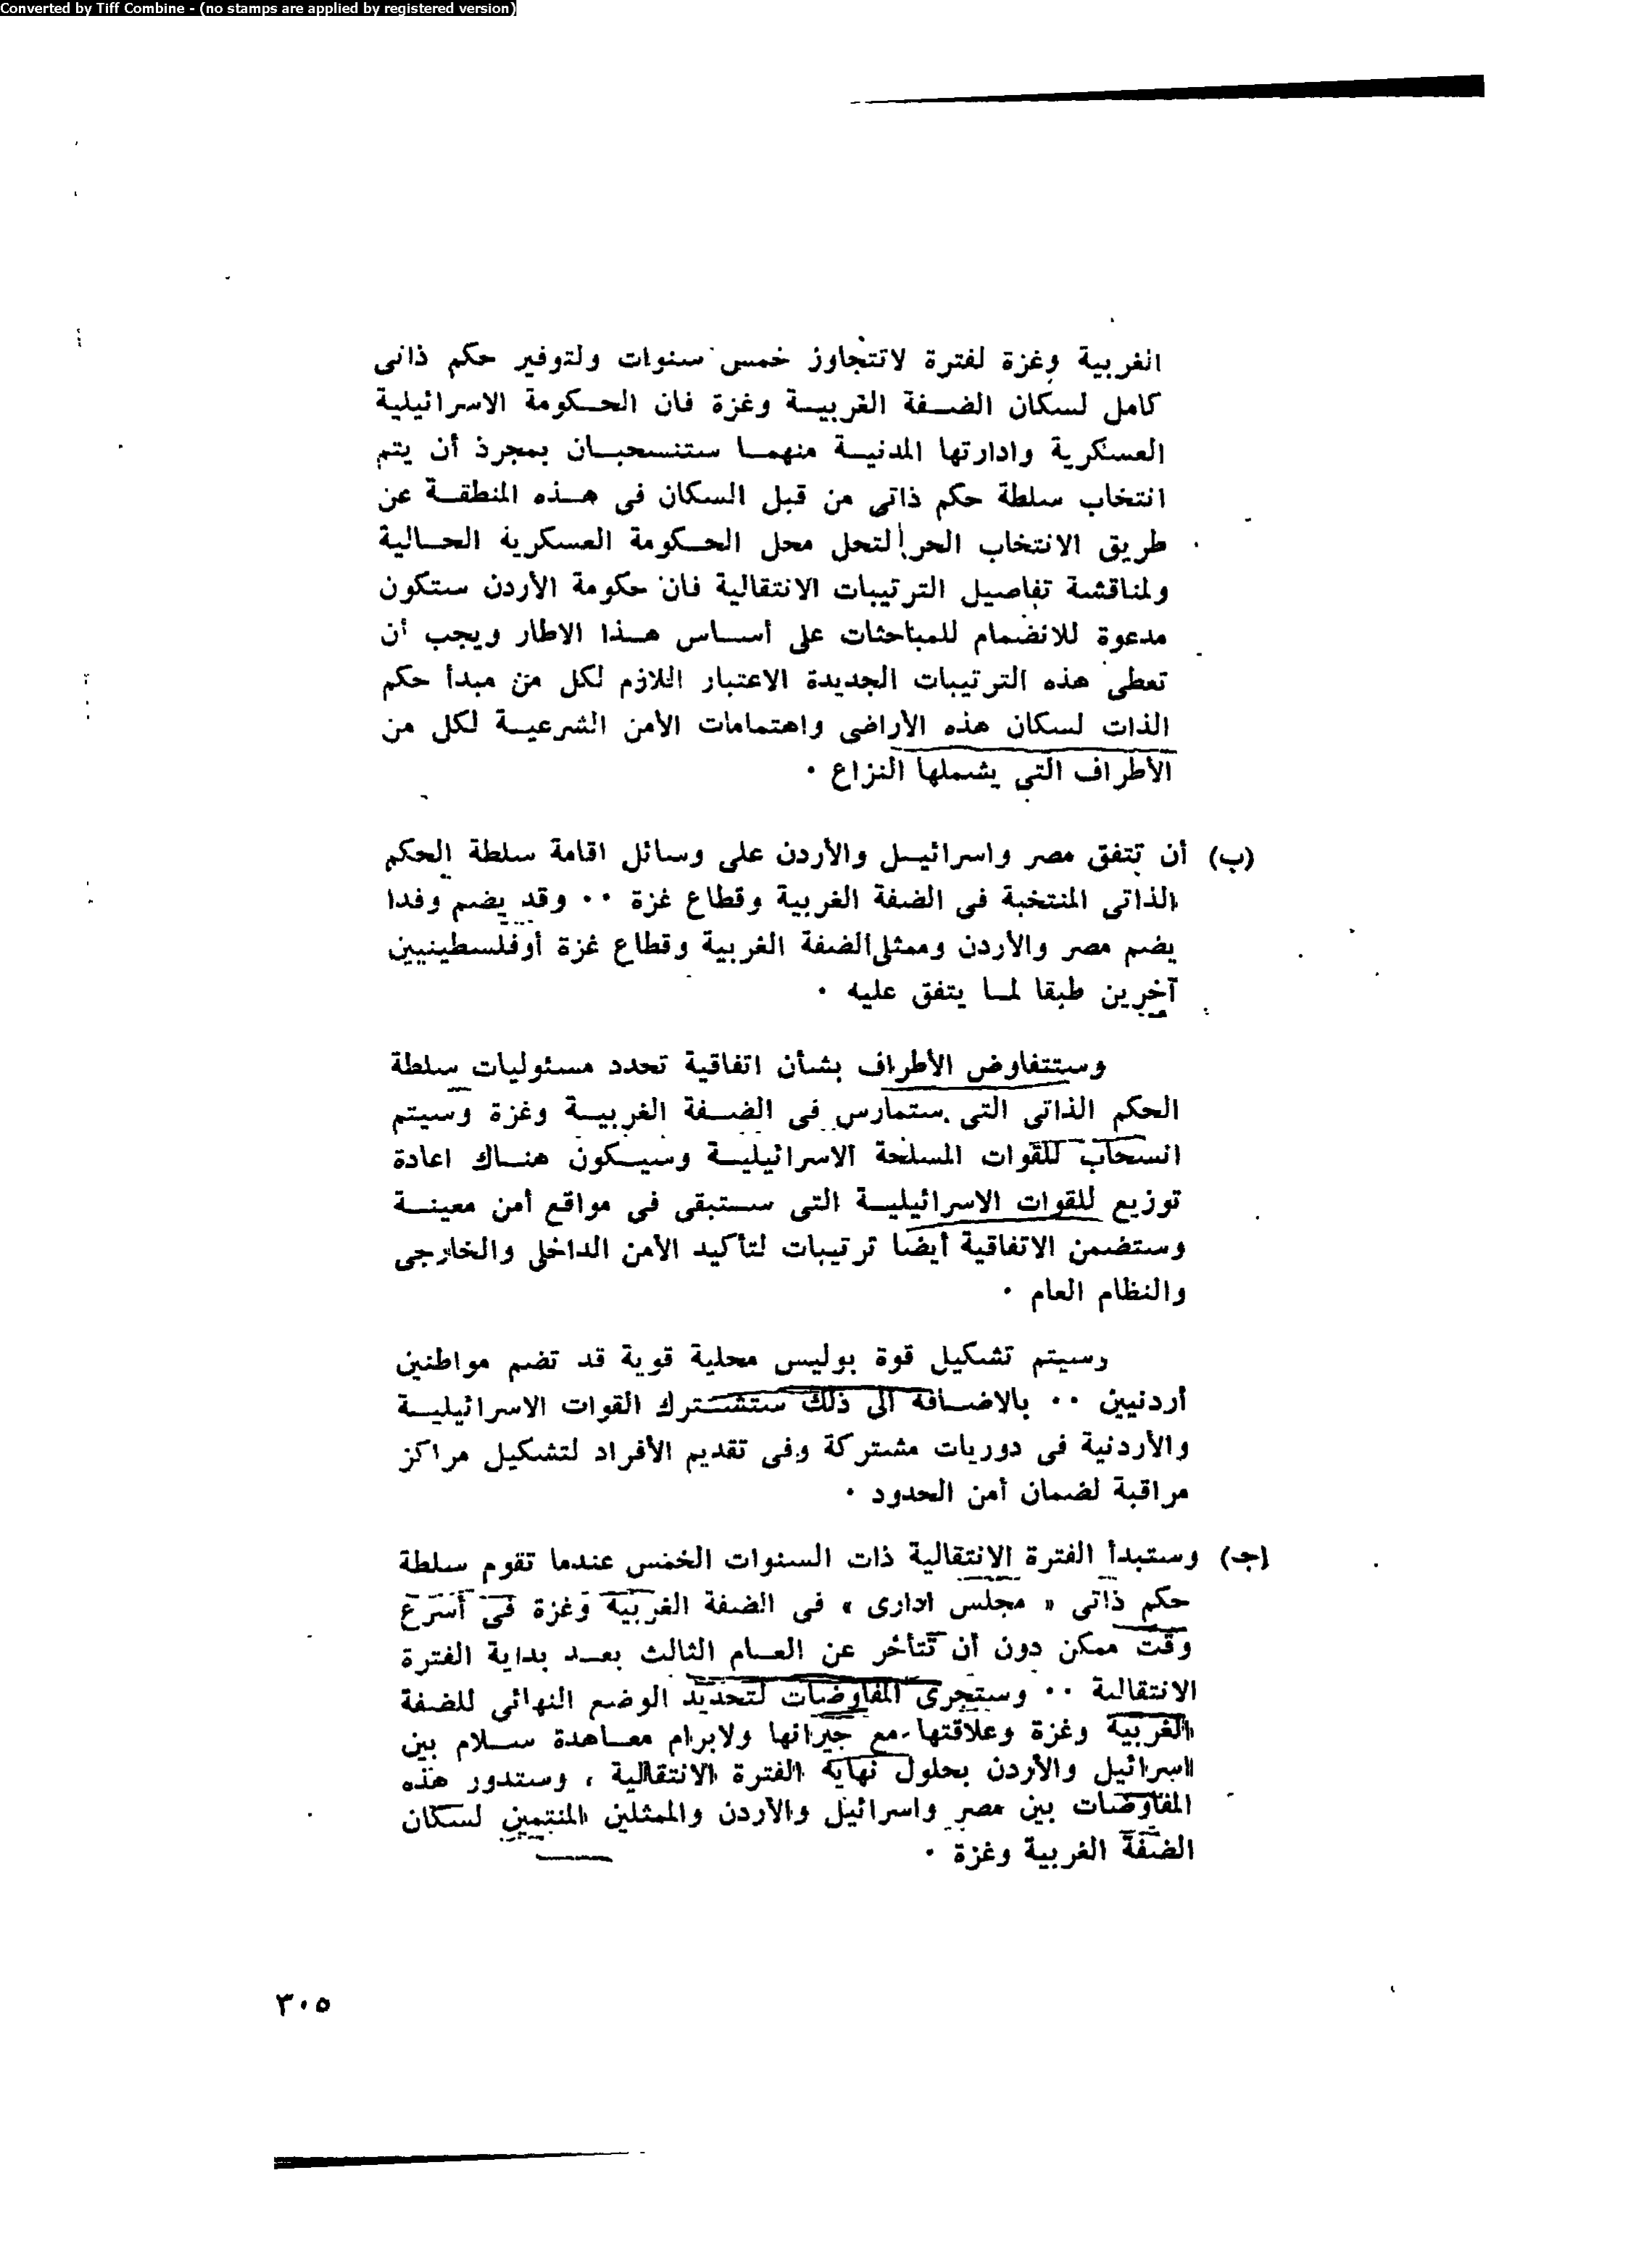 Converted by Tiff Combine - (no stamps are applied by registered version)
الغربية وغزة لفترة لاتتجاوز خمس سنوات ولتوفير حكم ذاتى
كامل لسكان الضفة الغربية وغزة فان الحكومة الاسرائيلية
العسكرية وادارتها المدنية منهما ستنسحبان بمجرد أن يتم
انتخاب سلطة حكم ذاتى من قبل السكان فى هذه المنطقة عن
طريق الانتخاب الحر لتحل محل الحكومة العسكرية الحالية
ولمناقشة تفاصيل الترتيبات الانتقالية فان حكومة الأردن ستكون
مدعوة للانضمام للمباحثات على أساس هذا الاطار ويجب أن
تعطى هذه الترتيبات الجديدة الاعتبار اللازم لكل من مبدأ حكم
الذات لسكان هذه الأراضى واهتمامات الأمن الشرعية لكل من
الأطراف التى يشملها النزاع ٠
(ب) أن تتفق مصر واسرائيل والأردن على وسائل اقامة سلطة الحكم
الذاتى المنتخبة فى الضفة الغربية وقطاع غزة ٠٠ وقد يضم وفدا
يضم مصر والأردن وممثلى الضفة الغربية وقطاع غزة أوفلسطينيين
آخرين طبقا لما يتفق عليه ٠
وستتفاوض الأطراف بشأن اتفاقية تحدد مسئوليات سلطة
الحكم الذاتى التى ستمارس فى الضفة الغربية وغزة وسيتم
انسحاب للقوات المسلحة الاسرائيلية وسيكون هناك اعادة
توزيع للقوات الاسرائيلية التى ستبقى فى مواقع أمن معينة
وستضمن الاتفاقية أيضا ترتيبات لتأكيد الأمن الداخلى والخارجى
والنظام العام ٠
وسيتم تشكيل قوة بوليس محلية قوية قد تضم مواطنين
أردنيين ٠٠ بالاضافة الى ذلك ستشترك القوات الاسرائيلية
والأردنية فى دوريات مشتركة وفى تقديم الأفراد لتشكيل مراكز
مراقبة لضمان أمن الحدود ٠
(جـ) وستبدأ الفترة الانتقالية ذات السنوات الخمس عندما تقوم سلطة
حكم ذاتى « مجلس ادارى » فى الضفة الغربية وغزة فى أسرع
وقت ممكن دون أن تتأخر عن العام الثالث بعد بداية الفترة
الانتقالية ٠٠ وستجرى المفاوضات لتحديد الوضع النهائى للضفة
الغربية وغزة وعلاقتها مع جيرانها ولابرام معاهدة سلام بين
اسرائيل والأردن بحلول نهاية الفترة الانتقالية ، وستدور هذه
المفاوضات بين مصر واسرائيل والأردن والممثلين المنتمين لسكان
الضفة الغربية وغزة ٠
٣٠٥